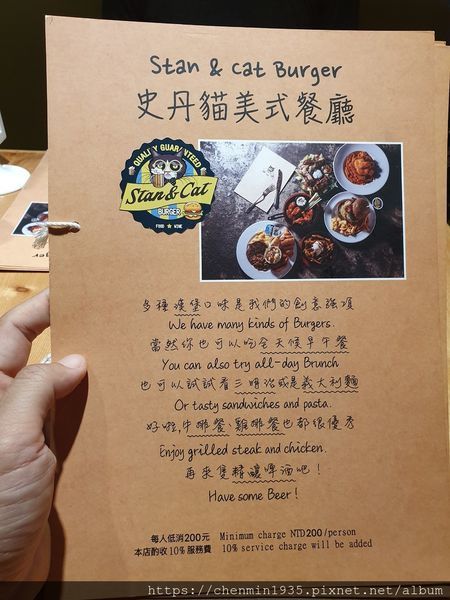 Stan & Cat Burger
史丹貓美式餐廳
QUALITY GUARANTEED
Stan & Cat
BURGER
FOOD ★ WINE
多種漢堡口味是我們的創意強項
We have many kinds of Burgers.
當然你也可以吃全天候早午餐
You can also try all-day Brunch
也可以試試看三明治或是義大利麵
Or tasty sandwiches and pasta.
好啦,牛排餐、雞排餐也都很優秀
Enjoy grilled steak and chicken.
再來隻精釀啤酒吧!
Have some Beer!
每人低消200元 Minimum charge NTD200/person
本店酌收10%服務費 10% service charge will be added
https://chenmin1935.pixnet.net/album